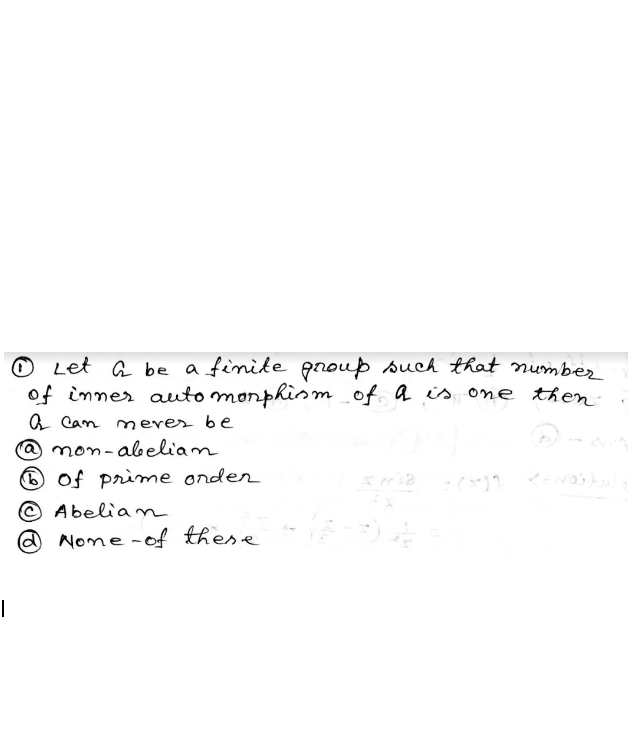 ① Let G be a finite group such that number
of inner automorphism of G is one then
G can never be
ⓐ non-abelian
ⓑ of prime order
ⓒ Abelian
ⓓ None-of these